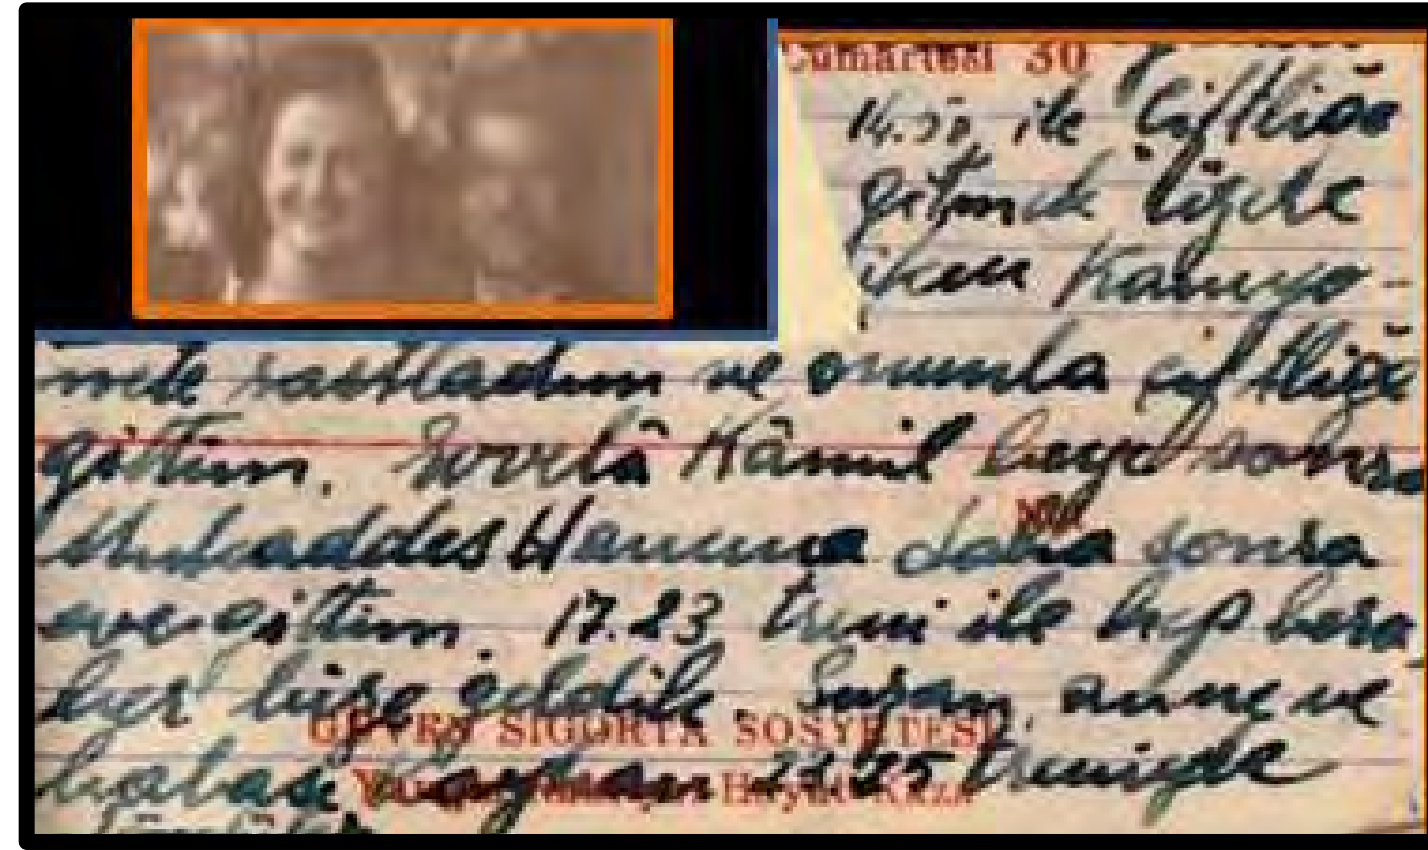 Cumartesi 30
14.50 ile Çiftliğe
gitmek üzere
iken Kamyo-
nete rastladım ve onunla çiftliğe
gittim. Evvelâ Kâmil beye sonra
Mukaddes Hanıma daha sonra
eve gittim. 17.23 treni ile hep bera
ber bize geldik. Suzan, anne ve
babası 22.25 treniyle
SİGORTA SOSYETESİ